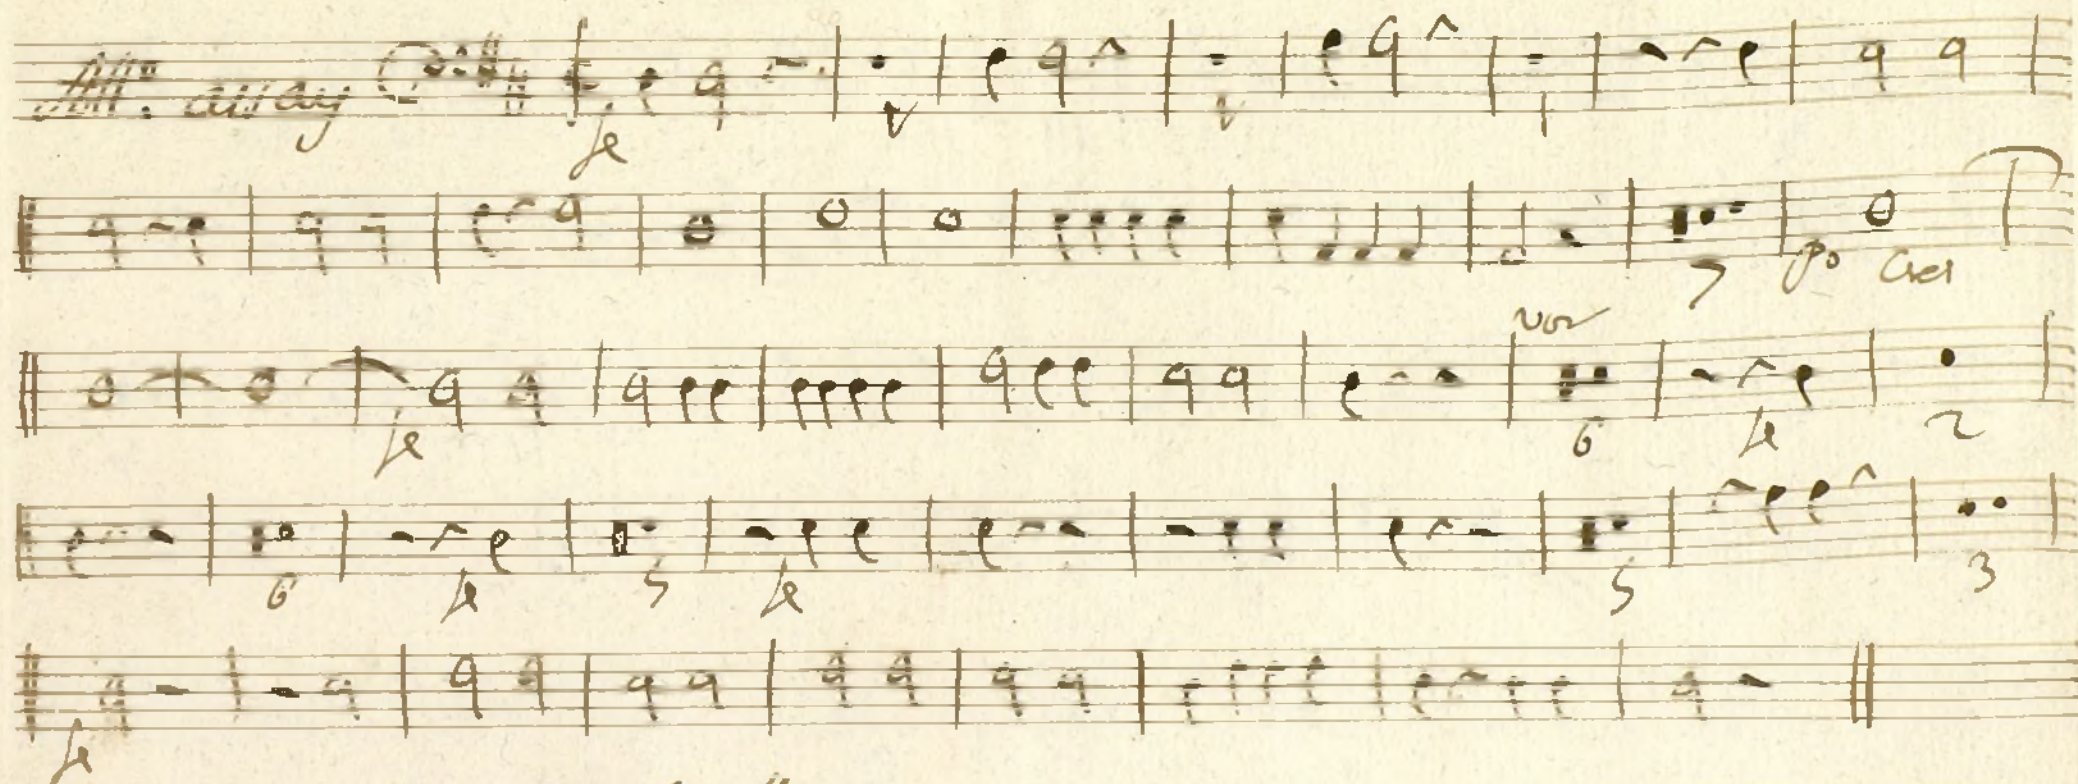 All.º assay
fe
po Cres
voz
fe 6 fe 2
6 fe 5 fe 5 3
fe